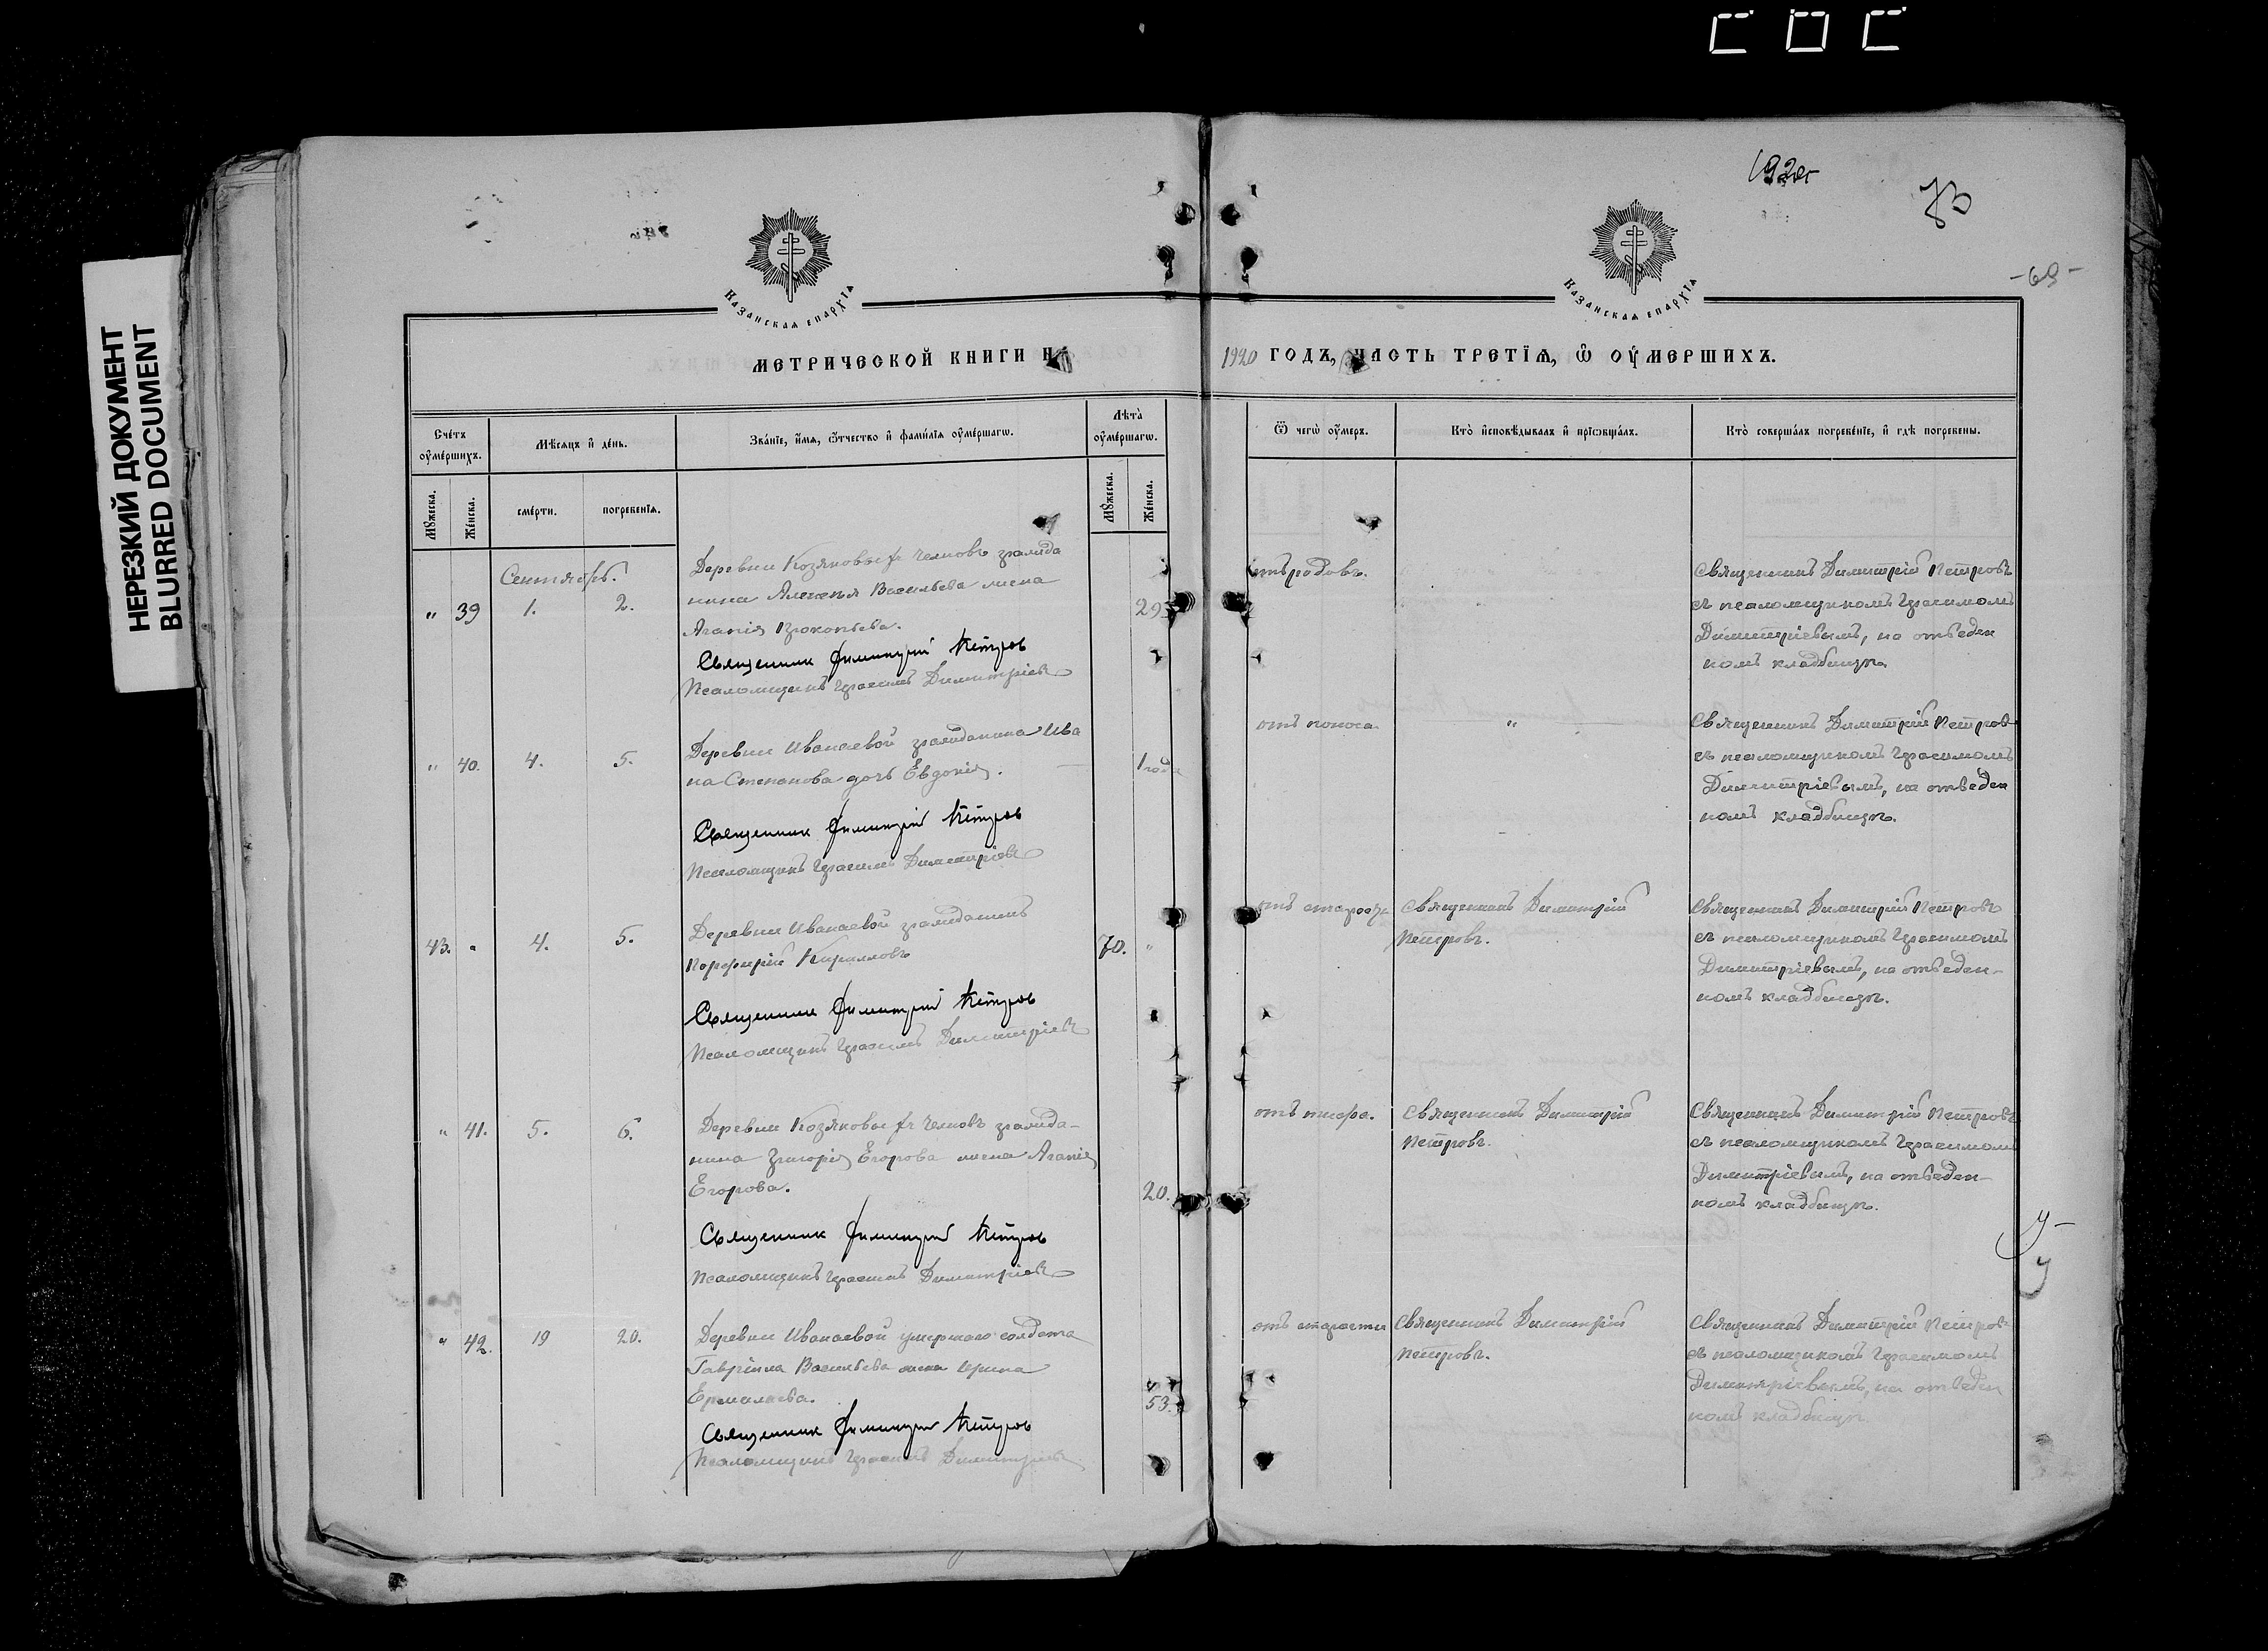 НЕРЕЗКИЙ ДОКУМЕНТ
BLURRED DOCUMENT
1920
-69-
КАЗАНСКАЯ ЕПАРХІЯ
КАЗАНСКАЯ ЕПАРХІЯ
МЕТРИЧЕСКОЙ КНИГИ НА 1920 ГОДЪ, ЧАСТЬ ТРЕТІЯ, Ѿ ОУМЕРШИХЪ.
Счетъ оумершихъ.
Мѣсяцъ и день.
Званіе, имя, отчество и фамилія оумершагѡ.
Лѣта оумершагѡ.
Ѿ чегѡ оумеръ.
Кто исповѣдывалъ и пріѡбщалъ.
Кто совершалъ погребеніе, и гдѣ погребены.
Мꙋжеска.
Женска.
смерти.
погребенія.
Мꙋжеска.
Женска.
Сентябрь.
" 39 1. 2.
Деревни Козяковыхъ Челновъ гражда
нина Алексѣя Васильева жена
Агапія Прокопьева.
29
Священник Димитрий Петров
Псаломщикъ Герасимъ Димитріевъ
отъ родовъ.
Священникъ Димитрій Петровъ
съ псаломщикомъ Герасимомъ
Димитріевымъ, на отведен
номъ кладбищѣ.
" 40. 4. 5.
Деревни Иванаевой гражданина Ива
на Степанова дочь Евдокія.
1 года
Священник Димитрий Петров
Псаломщикъ Герасимъ Димитріевъ
отъ поноса
"
Священникъ Димитрій Петровъ
съ псаломщикомъ Герасимомъ
Димитріевымъ, на отведен
номъ кладбищѣ.
43. " 4. 5.
Деревни Иванаевой гражданинъ
Порфирій Кирилловъ
70. "
Священник Димитрий Петров
Псаломщикъ Герасимъ Димитріевъ
отъ старости
Священникъ Димитрій
Петровъ.
Священникъ Димитрій Петровъ
съ псаломщикомъ Герасимомъ
Димитріевымъ, на отведен-
номъ кладбищѣ.
" 41. 5. 6.
Деревни Козяковыхъ Челновъ гражда-
нина Григорія Егорова жена Агапія
Егорова.
20.
Священник Димитрий Петров
Псаломщикъ Герасимъ Димитріевъ
отъ тифа.
Священникъ Димитрій
Петровъ.
Священникъ Димитрій Петровъ
съ псаломщикомъ Герасимомъ
Димитріевымъ, на отведен-
номъ кладбищѣ.
" 42. 19 20.
Деревни Иванаевой умершаго солдата
Гавріила Васильева жена Ирина
Ермилаева.
53.
Священник Димитрий Петров
Псаломщикъ Герасимъ Димитріевъ
отъ старости
Священникъ Димитрій
Петровъ.
Священникъ Димитрій Петровъ
съ псаломщикомъ Герасимомъ
Димитріевымъ, на отведен
номъ кладбищѣ